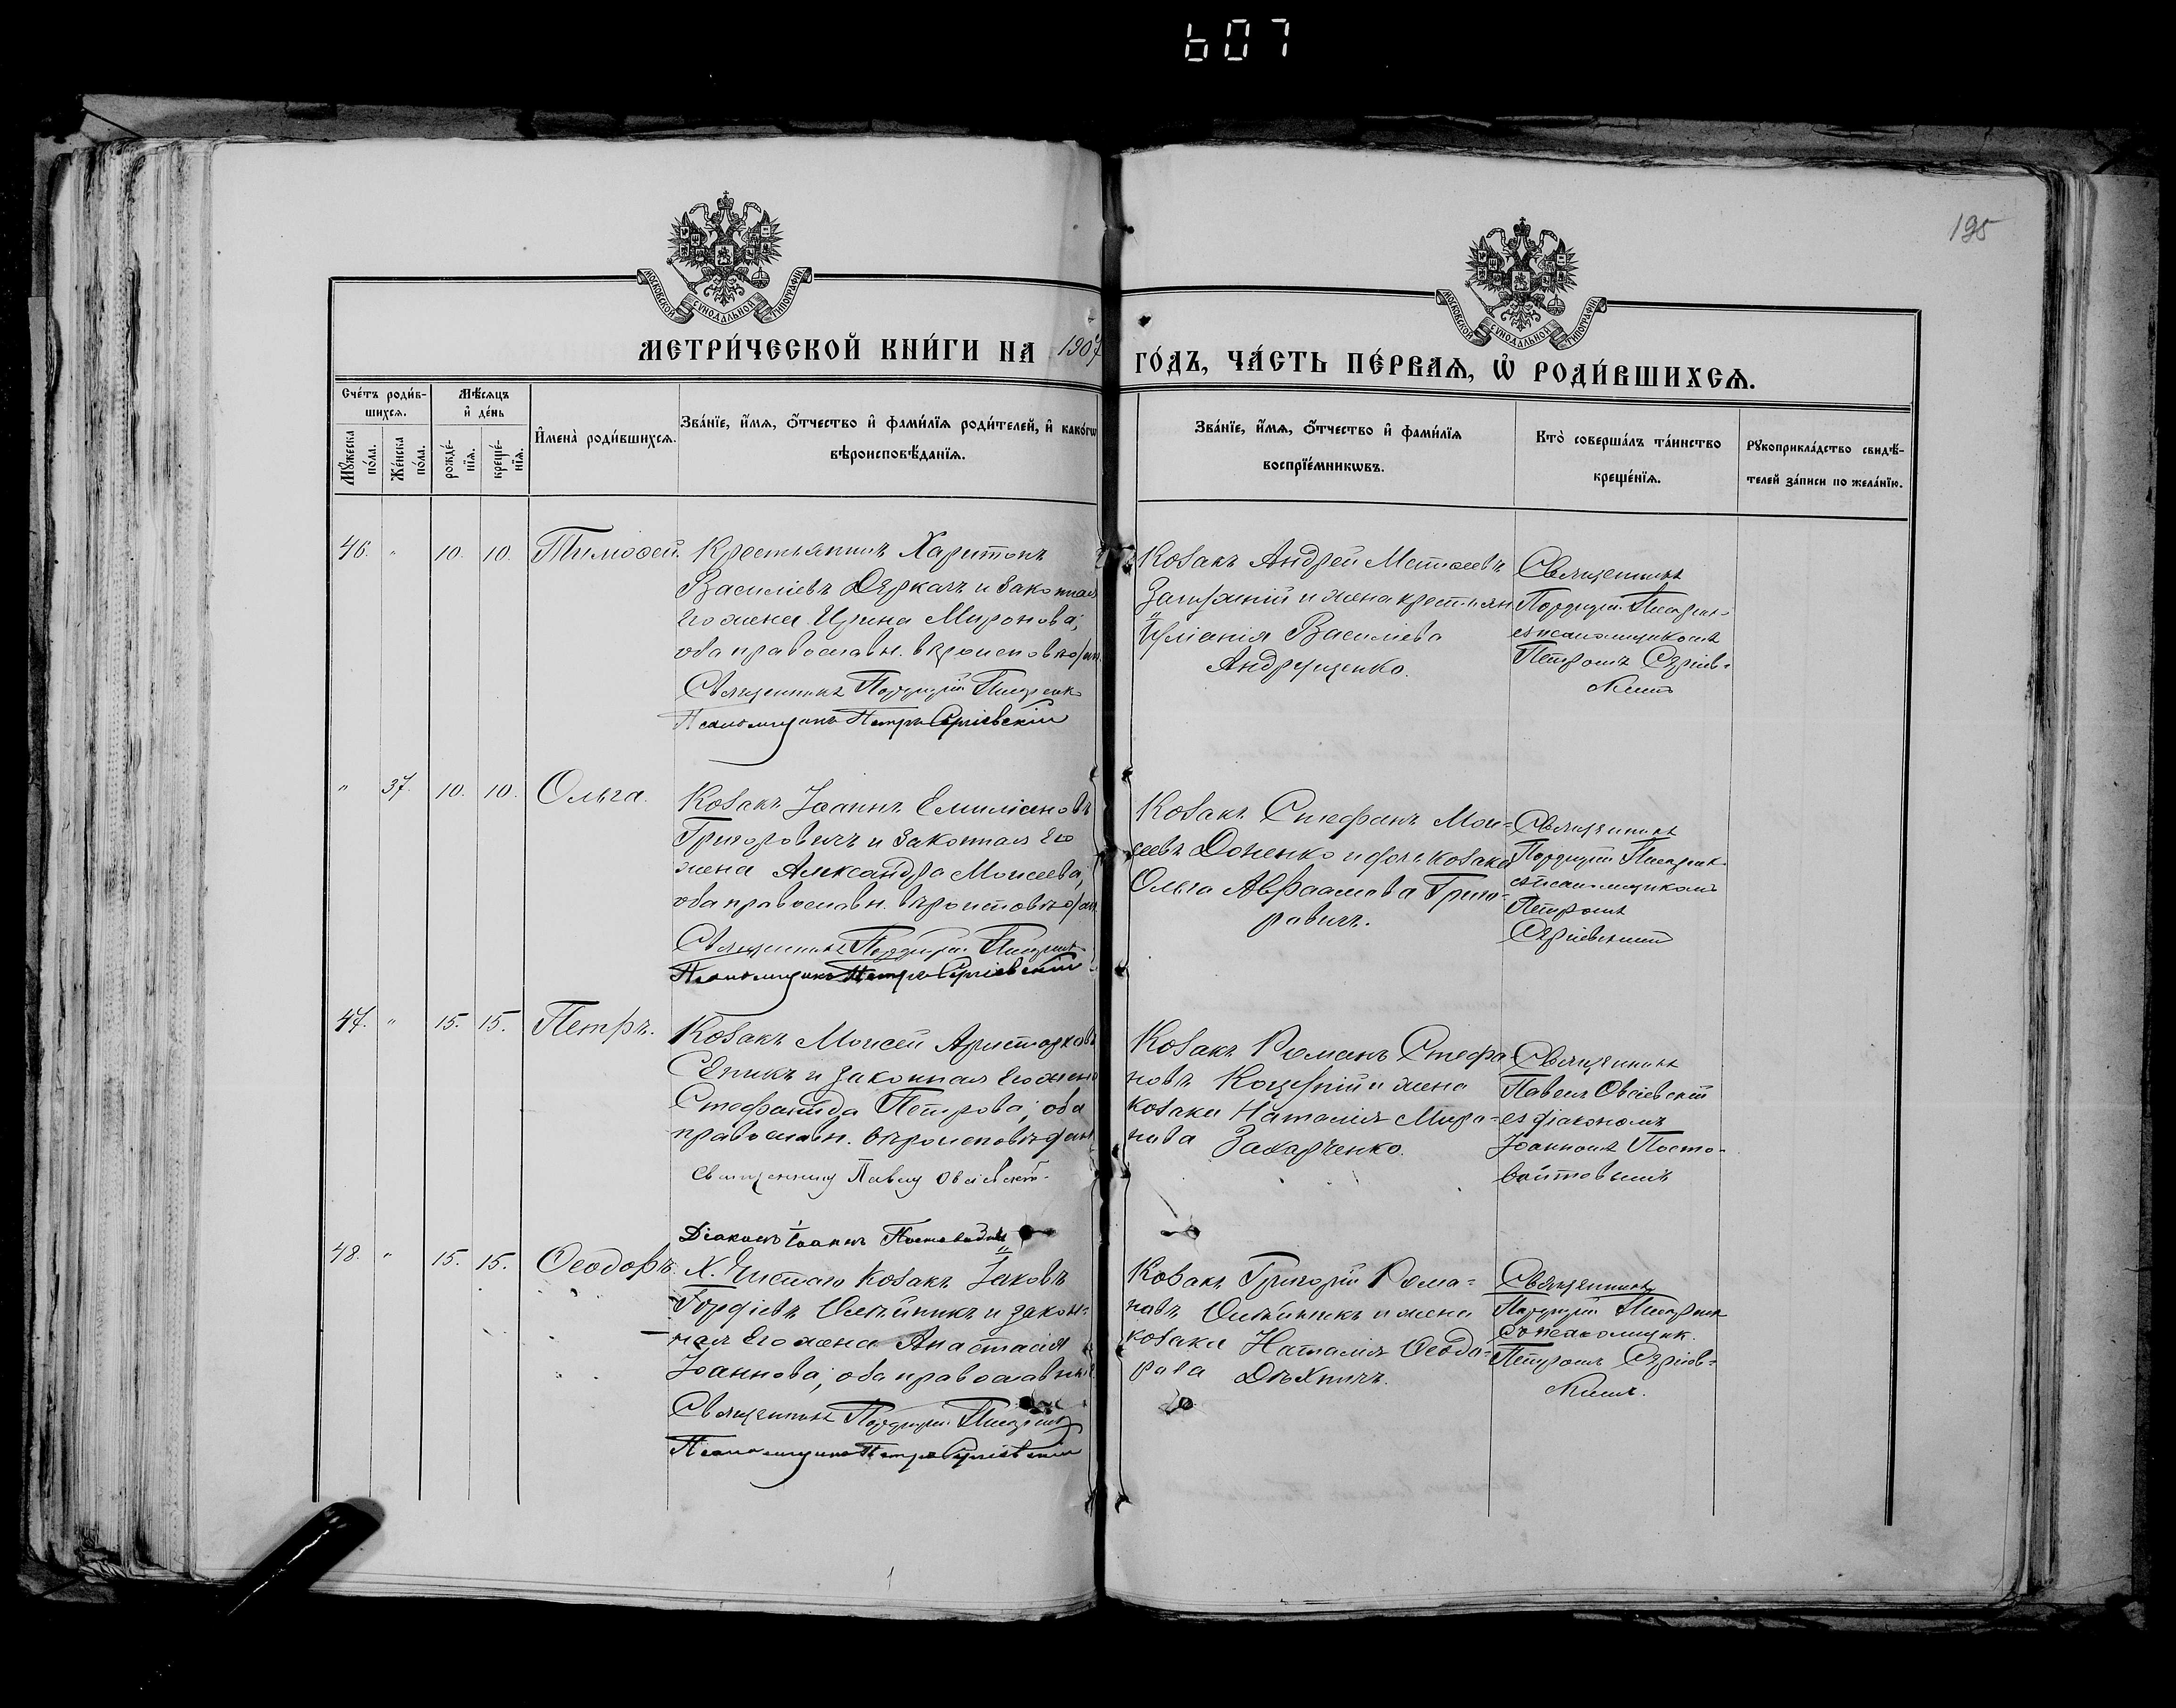 607
195
МОСКОВСКОЙ СУНОДАЛЬНОЙ ТИПОГРАФІИ
МОСКОВСКОЙ СУНОДАЛЬНОЙ ТИПОГРАФІИ
МЕТРИ́ЧЕСКОЙ КНИ́ГИ НА 1907
ГО́ДЪ, ЧА́СТЬ ПЕ́РВАѦ, Ѡ҆ РОДИ́ВШИХСѦ.
Сче́тъ роди́в-
шихсѧ.
Мꙋ́жеска
по́ла.
Же́нска
по́ла.
Мѣ́сѧцъ
и҆ де́нь
рожде́-
нїѧ.
креще́-
нїѧ.
И҆мена̀ роди́вшихсѧ.
Зва́нїе, и҆́мѧ, ѻ҆́тчество и҆ фами́лїѧ роди́телей, и҆ како́гѡ
вѣроисповѣ́данїѧ.
Зва́нїе, и҆́мѧ, ѻ҆́тчество и҆ фами́лїѧ
воспрїе́мникѡвъ.
Кто̀ соверша́лъ та́инство
креще́нїѧ.
Рꙋкоприкла́дство свидѣ́-
телей за́писи по жела́нїю.
46. " 10. 10. Тимоѳей.
Крестьянинъ Харитонъ
Василіевъ Деркачъ и законная
его жена Ирина Миронова;
оба православн. вѣроисповѣдан.
Священникъ Порфирій
Псаломщикъ Петръ Сергіевскій
Козакъ Андрей
и жена крестьян
Василіева
Андрущенко.
Священникъ
Порфирій
съ псаломщикомъ
Петромъ Сергіев-
скимъ
" 37. 10. 10. Ольга.
Козакъ Іоаннъ Емиліановъ
Григоровичъ и законная его
жена Александра Моисеева;
оба православн. вѣроисповѣдан.
Священникъ Порфирій
Псаломщикъ Петръ Сергіевскій
Козакъ Стефанъ Мои-
сеевъ Доненко и дочь козака
Ольга Авраамова Григо-
ровичъ.
Священникъ
Порфирій
съ псаломщикомъ
Петромъ
Сергіевскимъ
47. " 15. 15. Петръ.
Козакъ Моисей Аристарховъ
Сѣпикъ и законная его жена
Стефанида Петрова; оба
православн. вѣроисповѣдан
Священникъ Павелъ Овсіевскій.
Діаконъ Іоаннъ
Козакъ Романъ Стефа-
новъ и жена
козака Наталія Миро-
нова Захарченко.
Священникъ
Павелъ Овсіевскій
съ діакономъ
Іоанномъ Посто-
войтовымъ
48. " 15. 15. Ѳеодоръ.
Х. Козакъ Іаковъ
Гордіевъ Олѣйникъ и закон-
ная его жена Анастасія
Іоаннова; оба православные.
Священникъ Порфирій
Псаломщикъ Петръ Сергіевскій
Козакъ Григорій Рома-
новъ Олѣйникъ и жена
козака Наталія Ѳеодо-
рова
Священникъ
Порфирій
съ псаломщик.
Петромъ Сергіев-
скимъ.